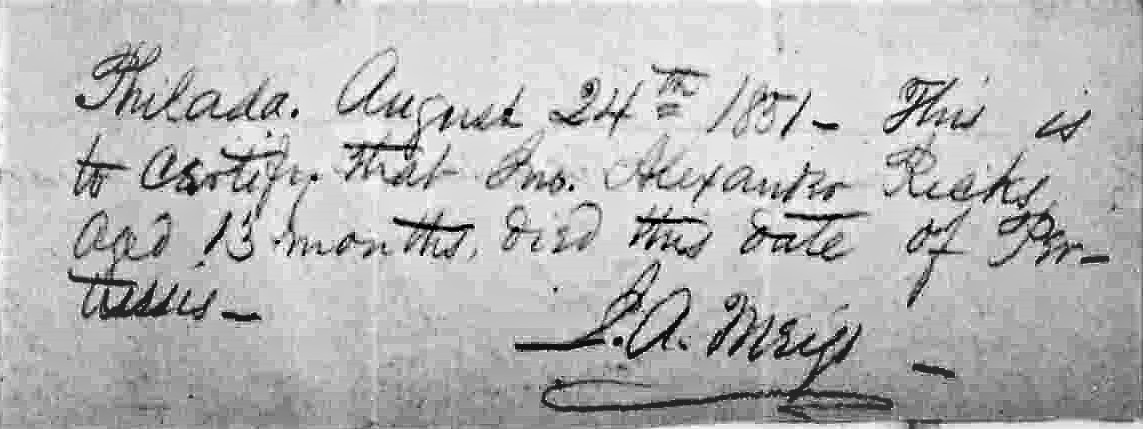 Philada. August 24th 1851 - This is
to certify. that Jno. Alexander Ricks,
aged 13 months, died this date of Per-
tussis -
J. A. Meigs -